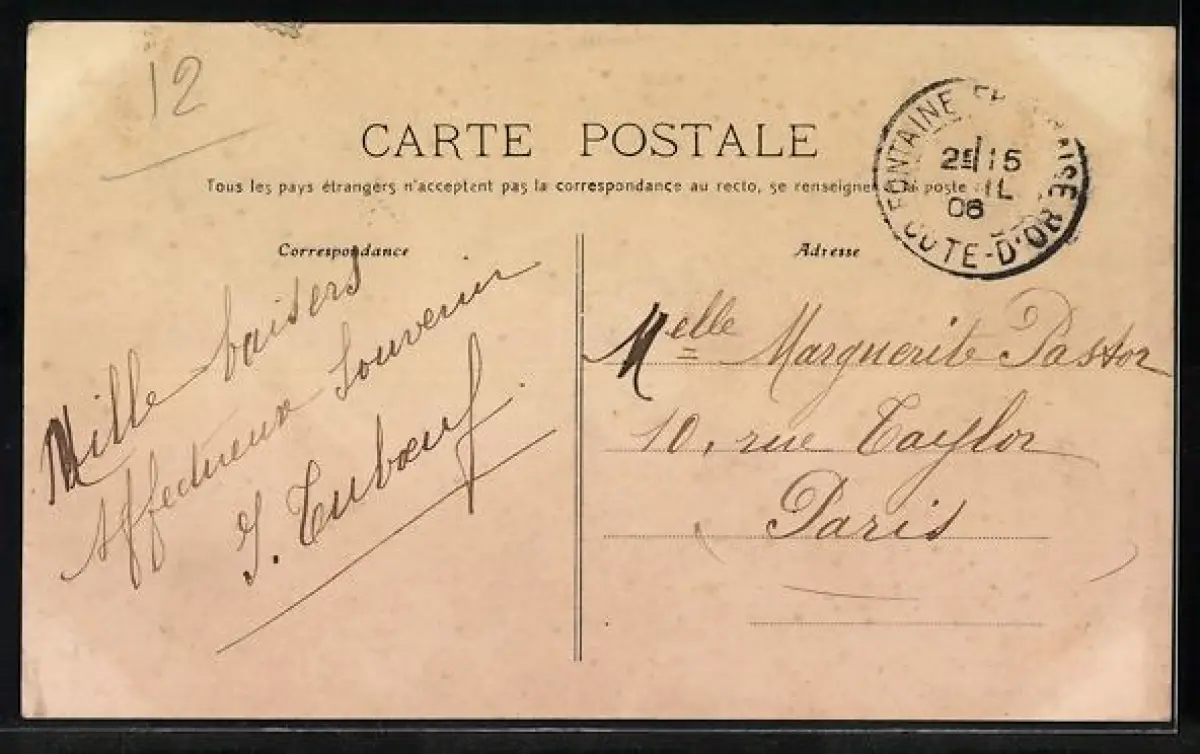 12
CARTE POSTALE
Tous les pays étrangers n'acceptent pas la correspondance au recto, se renseigner à la poste
FONTAINE
2E/15
06
COTE-D'OR
Correspondance
Mille baisers
Affectueux Souvenir
Adresse
Melle Marguerite Pastor
10, rue Taylor
Paris